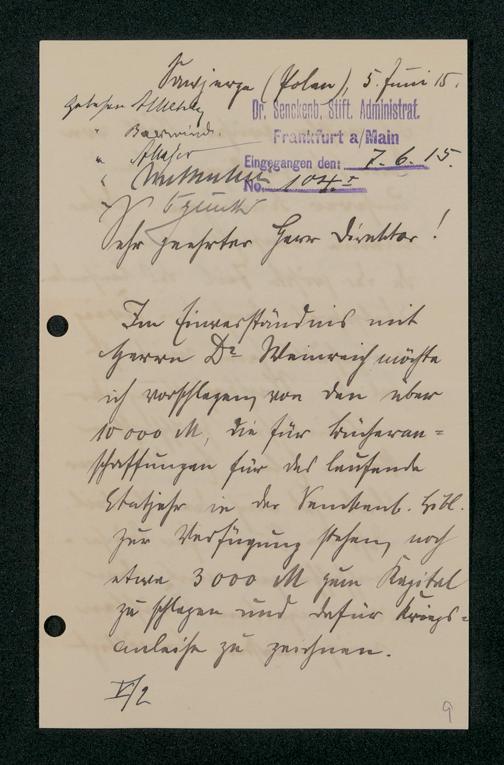 (Polen), 5. Juni 15.
gelesen
Dr. Senckenb. Stift. Administrat.
Frankfurt a/Main
Eingegangen den: 7.6.15.
No. 104.
Sehr geehrter Herr Direktor!
Im Einverständnis mit
Herrn Dr Weinreich möchte
ich vorschlagen, von den über
10000 M, die für Bücheran=
schaffungen für das laufende
Etatjahr in der Senckenb. Bibl.
zur Verfügung stehen, noch
etwa 3000 M zum Kapital
zu schlagen und dafür Kriegs=
anleihe zu zeichnen.
V/2
9